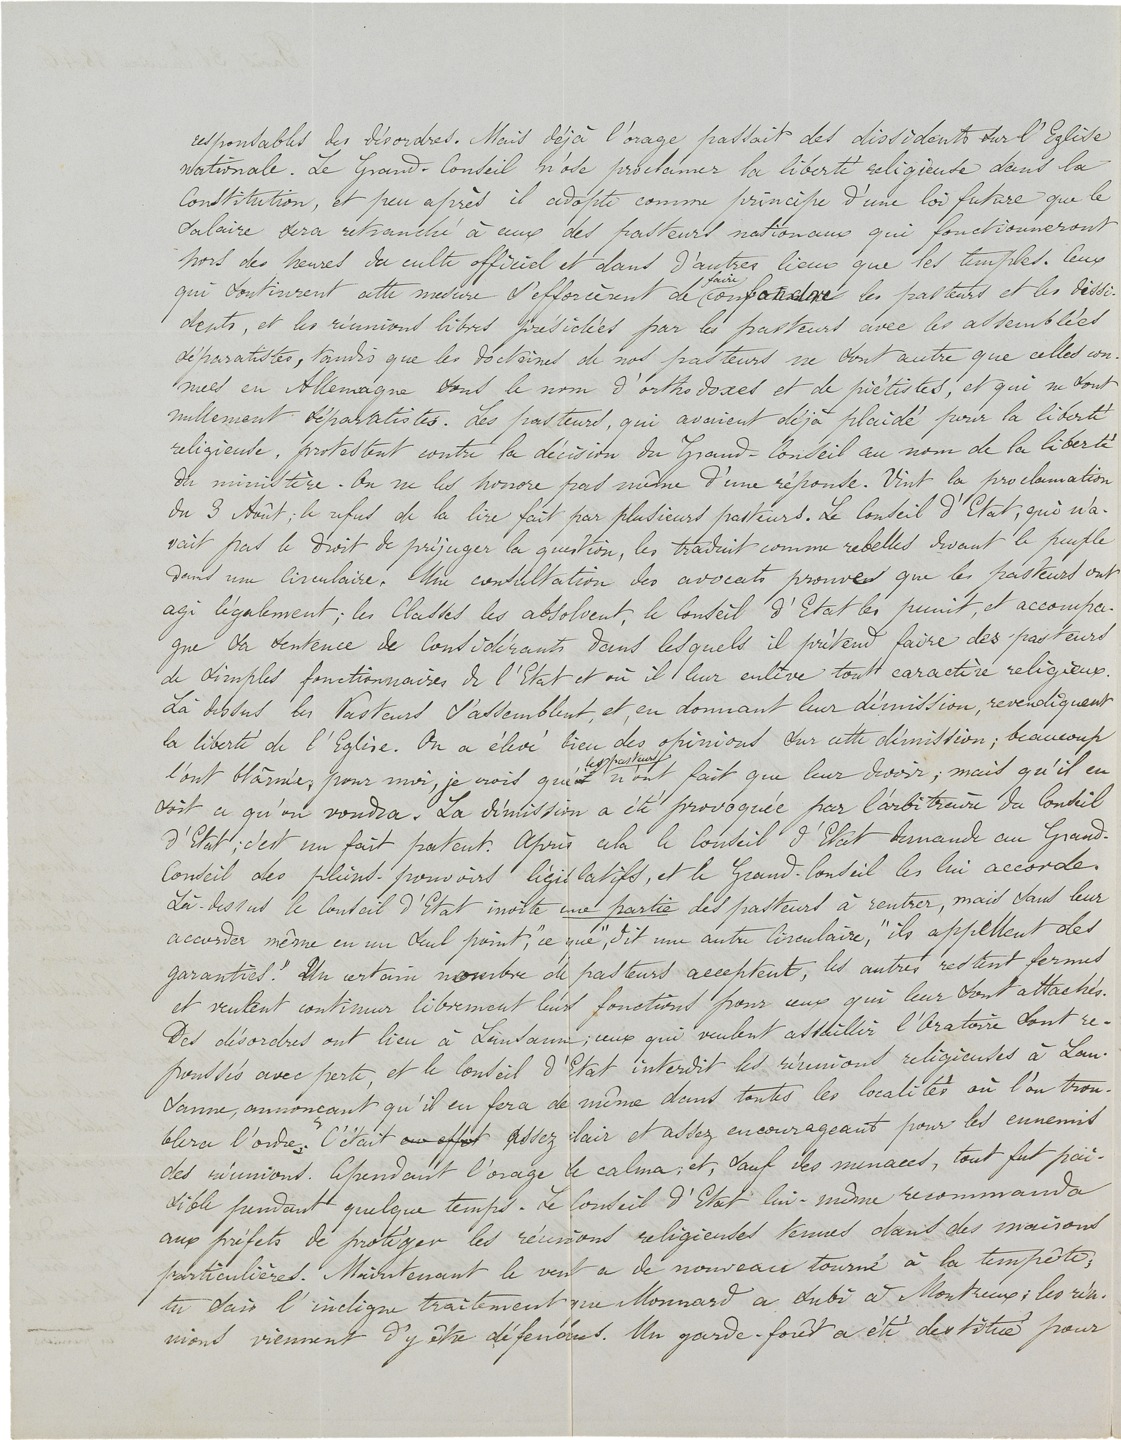 responsables des désordres. Mais déjà l'orage passait des dissidents sur l'Eglise
nationale. Le Grand-Conseil n'ose proclamer la liberté religieuse dans la
Constitution, et peu après il adopte comme principe d'une loi future que le
salaire sera retranché à ceux des pasteurs nationaux qui fonctionneront
hors des heures du culte officiel et dans d'autres lieux que les temples. Ceux
qui soutinrent cette mesure s'efforcèrent de faire confondre les pasteurs et les dissi-
dents, et les réunions libres présidées par les pasteurs avec les assemblées
séparatistes, tandis que les doctrines de nos pasteurs ne sont autre que celles con-
nues en Allemagne sous le nom d'orthodoxes et de piétistes, et qui ne sont
nullement séparatistes. Les pasteurs, qui avaient déjà plaidé pour la liberté
religieuse, protestent contre la décision du Grand-Conseil au nom de la liberté
du ministère. On ne les honore pas même d'une réponse. Vint la proclamation
du 3 Août; le refus de la lire fait par plusieurs pasteurs. Le Conseil d'Etat, qui n'a-
vait pas le droit de préjuger la question, les traduit comme rebelles devant le peuple
dans une circulaire. Une consultation des avocats prouve que les pasteurs ont
agi légalement; les Classes les absolvent, le Conseil d'Etat les punit, et accompa-
gne sa sentence de Considérants dans lesquels il prétend faire des pasteurs
de simples fonctionnaires de l'Etat et où il leur enlève tout caractère religieux.
Là dessus les Pasteurs s'assemblent, et, en donnant leur démission, revendiquent
la liberté de l'Eglise. On a élevé bien des opinions sur cette démission; beaucoup
l'ont blâmée, pour moi, je crois que les pasteurs n'ont fait que leur devoir; mais qu'il en
soit ce qu'on voudra. La démission a été provoquée par l'arbitraire du Conseil
d'Etat; c'est un fait patent. Après cela le Conseil d'Etat demande au Grand-
Conseil des pleins-pouvoirs législatifs, et le Grand-Conseil les lui accorde.
Là-dessus le Conseil d'Etat invite une partie des pasteurs à rentrer, mais sans leur
accorder même en un seul point, "ce que", dit une autre circulaire, "ils appellent des
garanties." Un certain nombre de pasteurs acceptent, les autres restent fermes
et veulent continuer librement leurs fonctions pour ceux qui leur sont attachés.
Des désordres ont lieu à Lausanne; ceux qui veulent assaillir l'Oratoire sont re-
poussés avec perte, et le Conseil d'Etat interdit les réunions religieuses à Lau-
sanne, annonçant qu'il en fera de même dans toutes les localités où l'on trou-
blera l'ordre. C'était en effet assez clair et assez encourageant pour les ennemis
des réunions. Cependant l'orage se calma; et, sauf des menaces, tout fut pai-
sible pendant quelque temps. Le Conseil d'Etat lui-même recommanda
aux préfets de protéger les réunions religieuses tenues dans des maisons
particulières. Maintenant le vent a de nouveau tourné à la tempête;
tu sais l'indigne traitement que Monnard a subi à Montreux; les réu-
nions viennent d'y être défendues. Un garde-forêt a été destitué pour